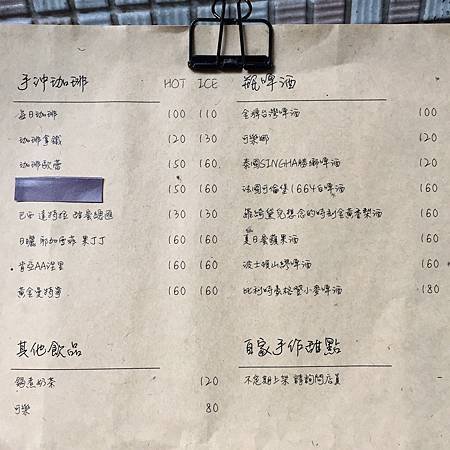 手沖咖啡 HOT ICE
每日咖啡 100 110
咖啡拿鐵 120 130
咖啡歐蕾 150 160
150 160
巴西 達特拉 酵素德圓 130 130
日曬 耶加雪菲 果丁丁 160 160
肯亞AA涅里 160 160
黃金曼特寧 160 160
其他飲品
鍋煮奶茶 120
可樂 80
瓶啤酒
金牌台灣啤酒 100
可樂娜 120
泰國SINGHA勝獅啤酒 120
法國可倫堡1664白啤酒 160
菲綺黛兒想念的時刻金黃香梨酒 160
夏日蜜蘋果酒 160
波士頓山繆啤酒 160
比利時豪格登小麥啤酒 180
自家手作甜點
不定期上架 請詢問店員